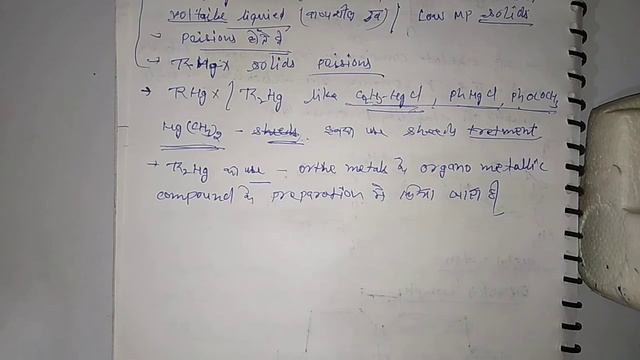 voltaible liquied (वाष्पशील द्रव) / Low MP solids
→ paisions होते है
→ R-Hg-X solids paisions
→ RHgX / R₂Hg like C₂H₅-HgCl, PhHgCl, PhOCOCH₃
Hg(CH₃)₂ - इनका use sheeds tretment
→ R₂Hg का use - orthe metals के organo metallic
compound के preparation में किया जाता है